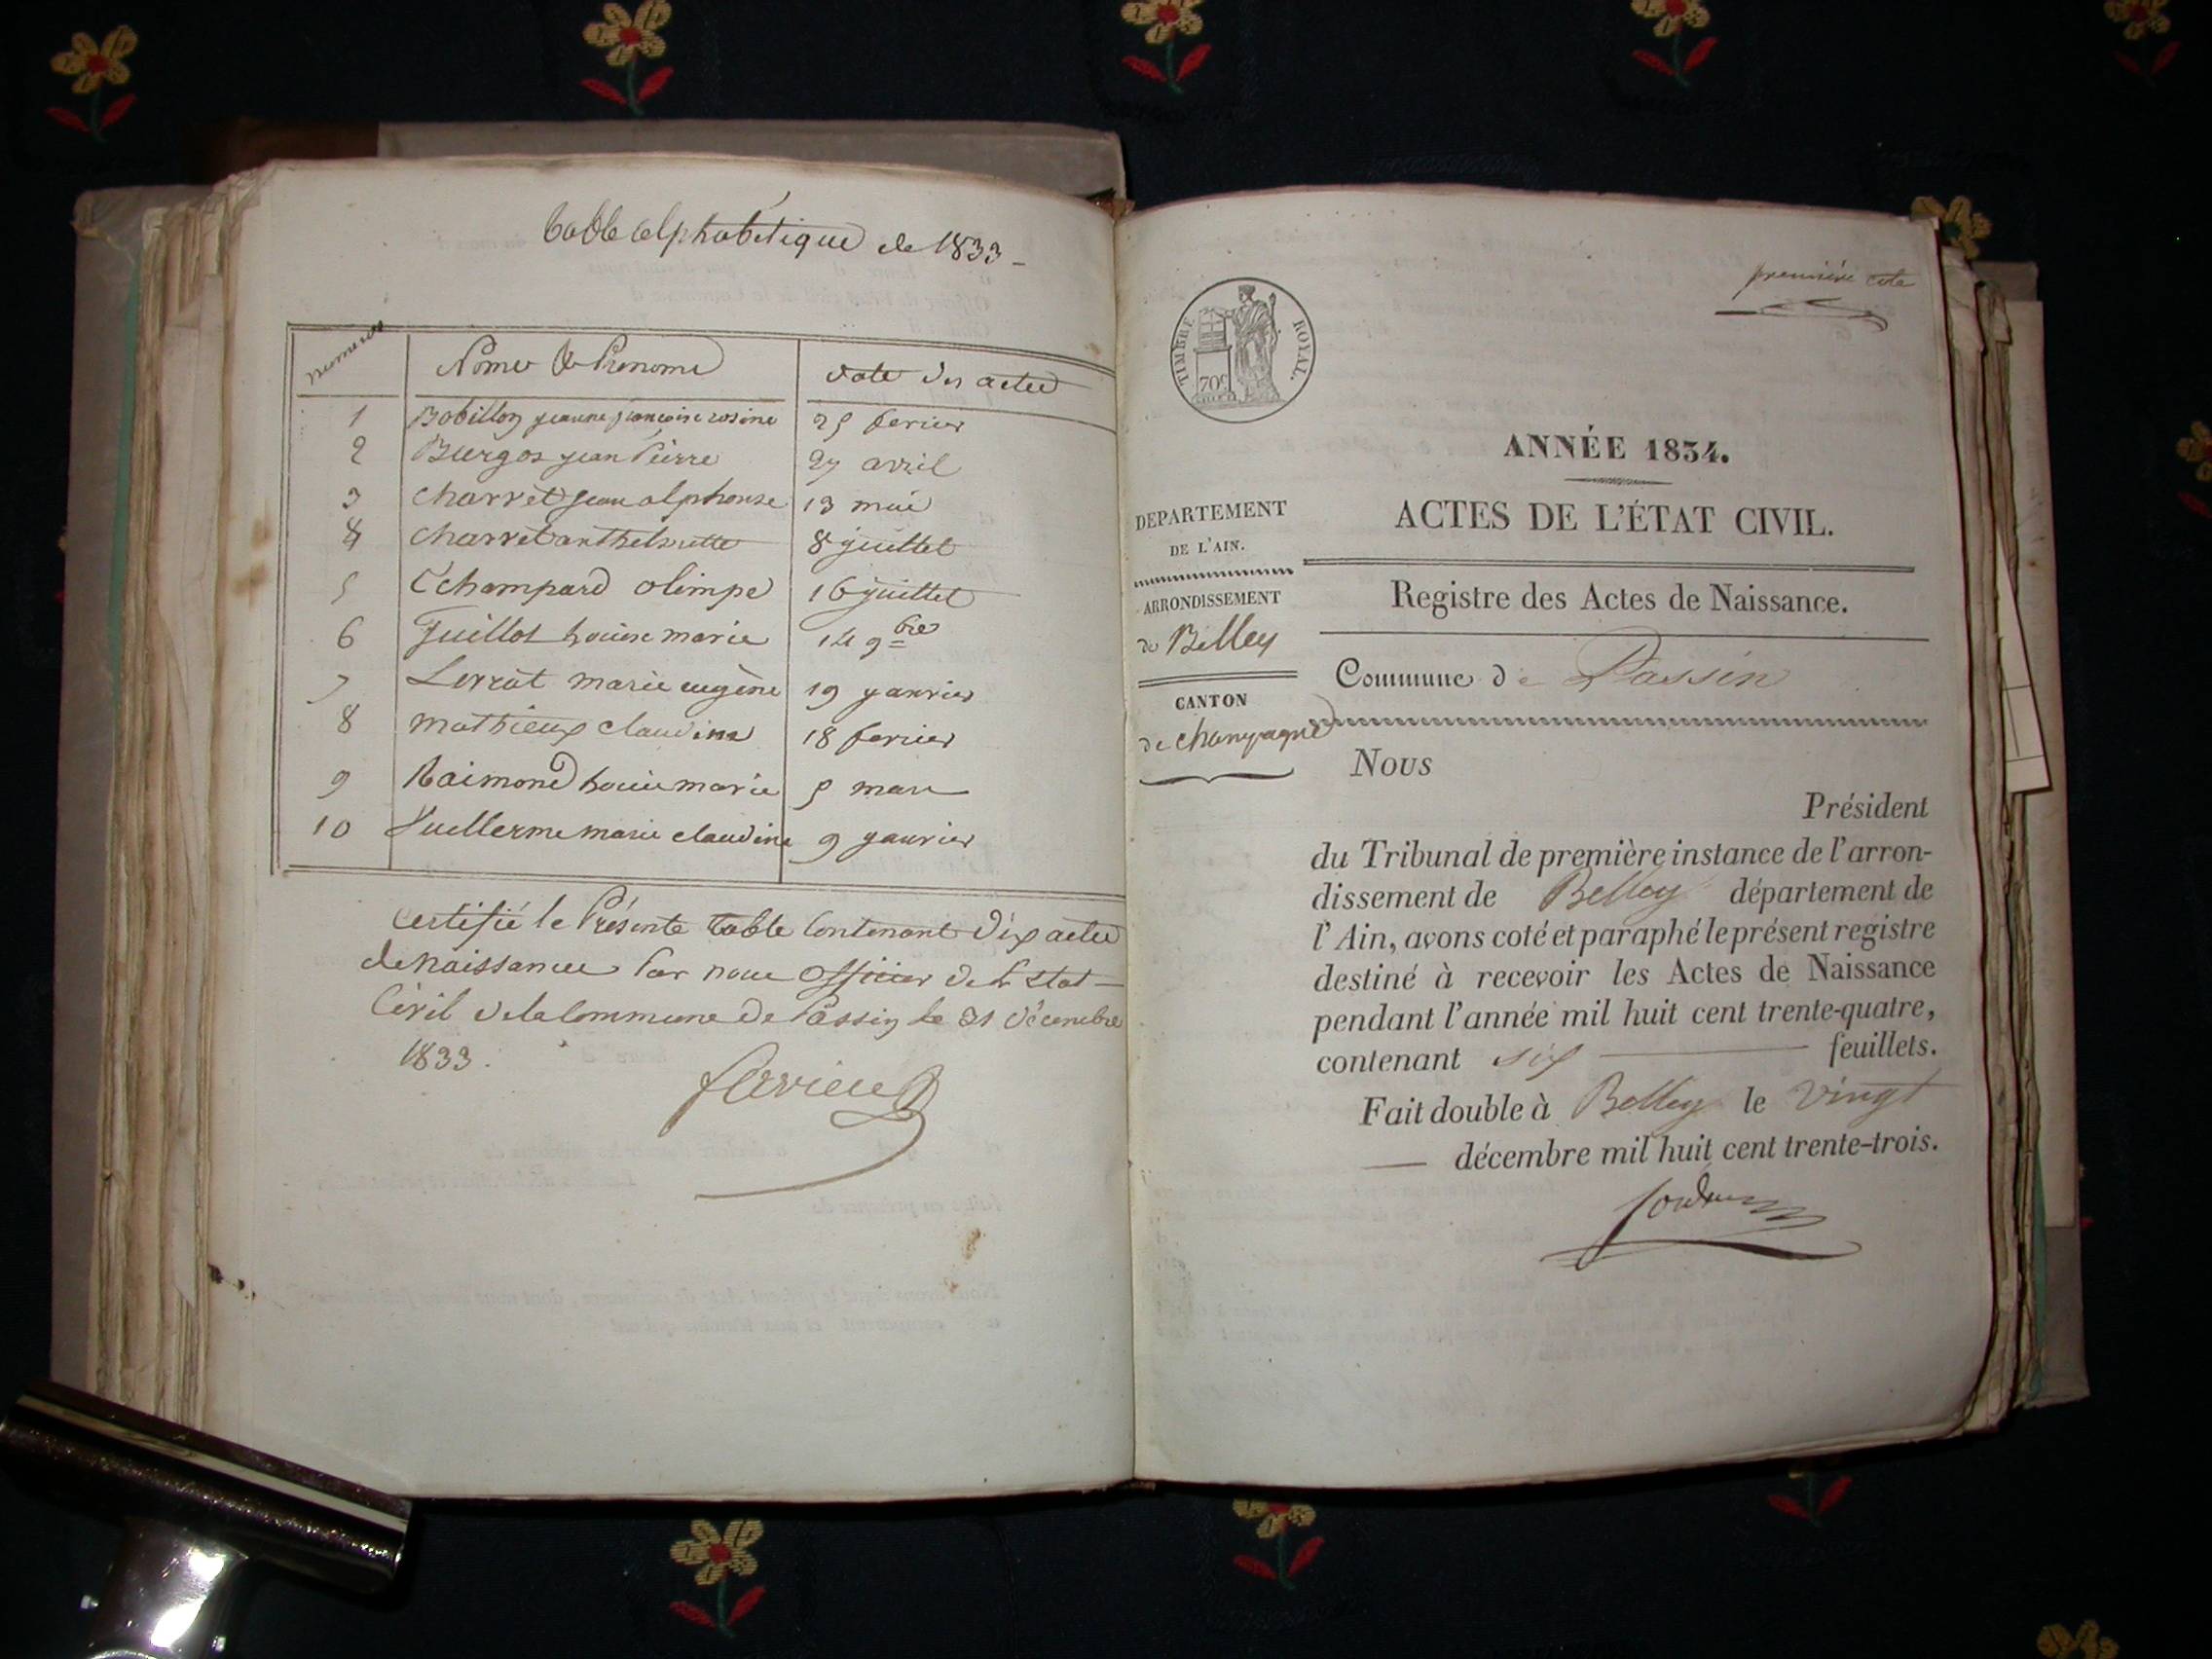 table alphabétique de 1833 -
numeros
Noms & Prenoms
date des actes
1 Bobillon jeanne françoise rosine 25 fevrier
2 Burgos jean Pierre 27 avril
3 charvet jean alphonse 13 mai
4 charvet anthelmette 8 juillet
5 Echampard olimpe 16 juillet
6 Guillot Louise marie 14 9bre
7 Lerrat marie eugène 19 janvier
8 mathieux claudine 18 fevrier
9 Raimond Louise marie 5 mars
10 Vuillerme marie claudine 9 janvier
Certifié le Présente table Contenant dix actes
de naissances Par nous officier de L'Etat
Civil de la Commune de Passin le 31 décembre
1833.
première cote
TIMBRE ROYAL.
70c
ANNÉE 1834.
ACTES DE L'ÉTAT CIVIL.
DEPARTEMENT
DE L'AIN.
ARRONDISSEMENT
de Belley
CANTON
de champagne
Registre des Actes de Naissance.
Commune de Passin
Nous
Président
du Tribunal de première instance de l'arron-
dissement de Belley département de
l'Ain, avons coté et paraphé le présent registre
destiné à recevoir les Actes de Naissance
pendant l'année mil huit cent trente-quatre,
contenant six feuillets.
Fait double à Belley le vingt
décembre mil huit cent trente-trois.